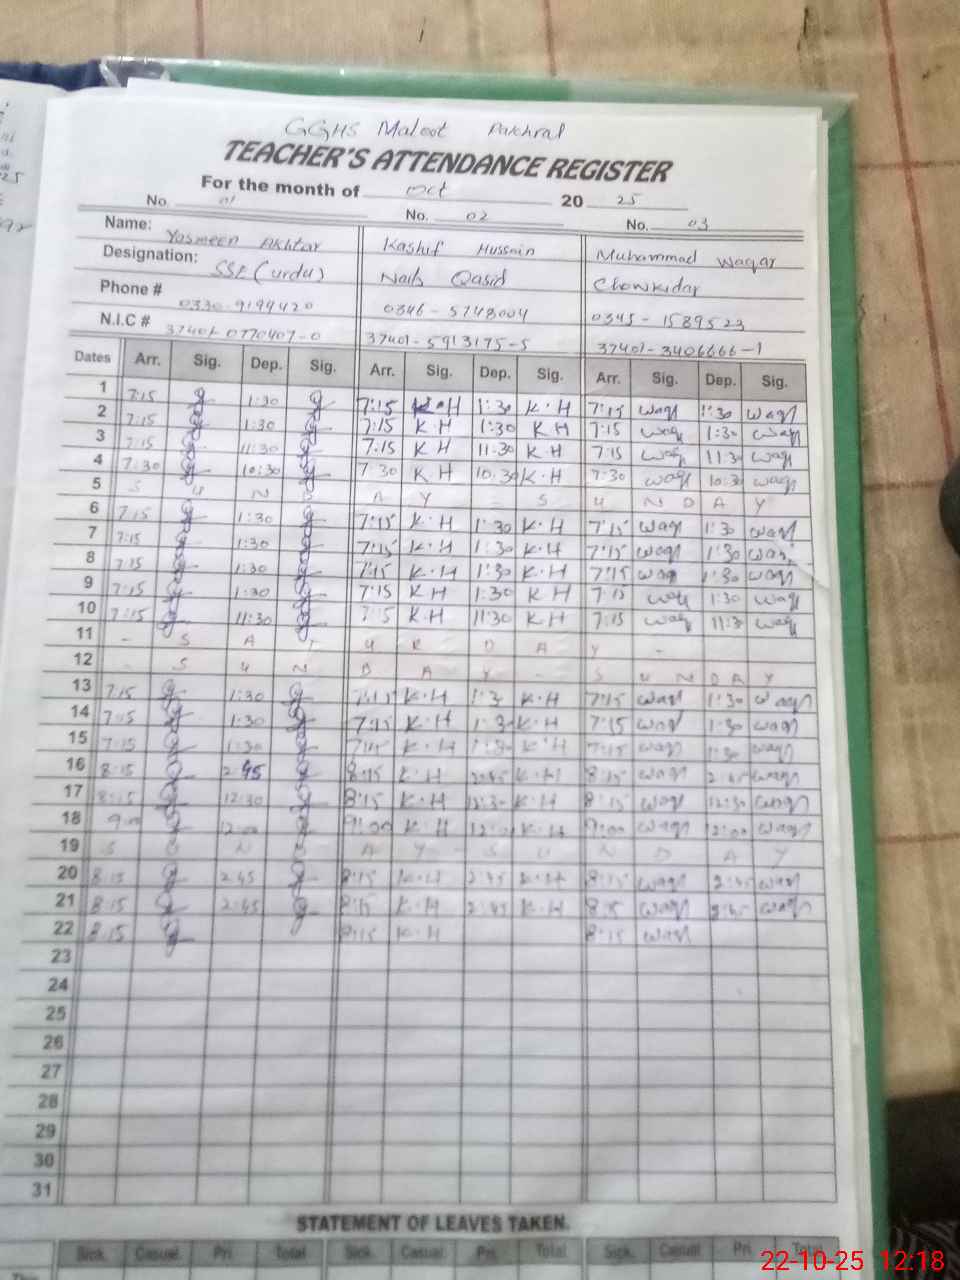 GGHS Maloot Pakhral
TEACHER'S ATTENDANCE REGISTER
For the month of Oct 20 25
No. 01 No. 02 No. 03
Name: Yasmeen Akhtar Kashif Hussain Muhammad Waqar
Designation: SSE (urdu) Naib Qasid Chowkidar
Phone # 0330-9199420 0346-5748004 0345-1589523
N.I.C # 37401-0770407-0 37401-5913175-5 37401-3406666-1
Dates Arr. Sig. Dep. Sig. Arr. Sig. Dep. Sig. Arr. Sig. Dep. Sig.
1 7:15 1:30 7:15 K.H 1:30 K.H 7:15 waqr 1:30 waqr
2 7:15 1:30 7:15 K H 1:30 K H 7:15 waqr 1:30 waqr
3 7:15 11:30 7:15 K H 11:30 K H 7:15 waqr 11:30 waqr
4 7:30 10:30 7:30 K H 10:30 K H 7:30 waqr 10:30 waqr
5 S U N D A Y - S U N D A Y
6 7:15 1:30 7:15 K.H 1:30 K.H 7:15 waqr 1:30 waqr
7 7:15 1:30 7:15 K.H 1:30 K.H 7:15 waqr 1:30 waqr
8 7:15 1:30 7:15 K.H 1:30 K.H 7:15 waqr 1:30 waqr
9 7:15 1:30 7:15 K H 1:30 K H 7:15 waqr 1:30 waqr
10 7:15 11:30 7:15 K.H 11:30 K H 7:15 waqr 11:30 waqr
11 - S A T U R D A Y -
12 - S U N D A Y - S U N D A Y
13 7:15 1:30 7:15 K.H 1:30 K.H 7:15 waqr 1:30 waqr
14 7:15 1:30 7:15 K.H 1:30 K.H 7:15 waqr 1:30 waqr
15 7:15 1:30 7:15 K.H 1:30 K.H 7:15 waqr 1:30 waqr
16 8:15 2:45 8:15 K.H 2:45 K.H 8:15 waqr 2:45 waqr
17 8:15 12:30 8:15 K.H 12:30 K.H 8:15 waqr 12:30 waqr
18 9:00 12:00 9:00 K.H 12:00 K.H 9:00 waqr 12:00 waqr
19 S U N D A Y - S U N D A Y
20 8:15 2:45 8:15 K.H 2:45 K.H 8:15 waqr 2:45 waqr
21 8:15 2:45 8:15 K.H 2:45 K.H 8:15 waqr 2:45 waqr
22 8:15 8:15 K.H 8:15 waqr
23
24
25
26
27
28
29
30
31
STATEMENT OF LEAVES TAKEN.
Sick. Casual Pri. Total Sick. Casual Pri. Total Sick. Casual Pri. Total
22-10-25 12:18